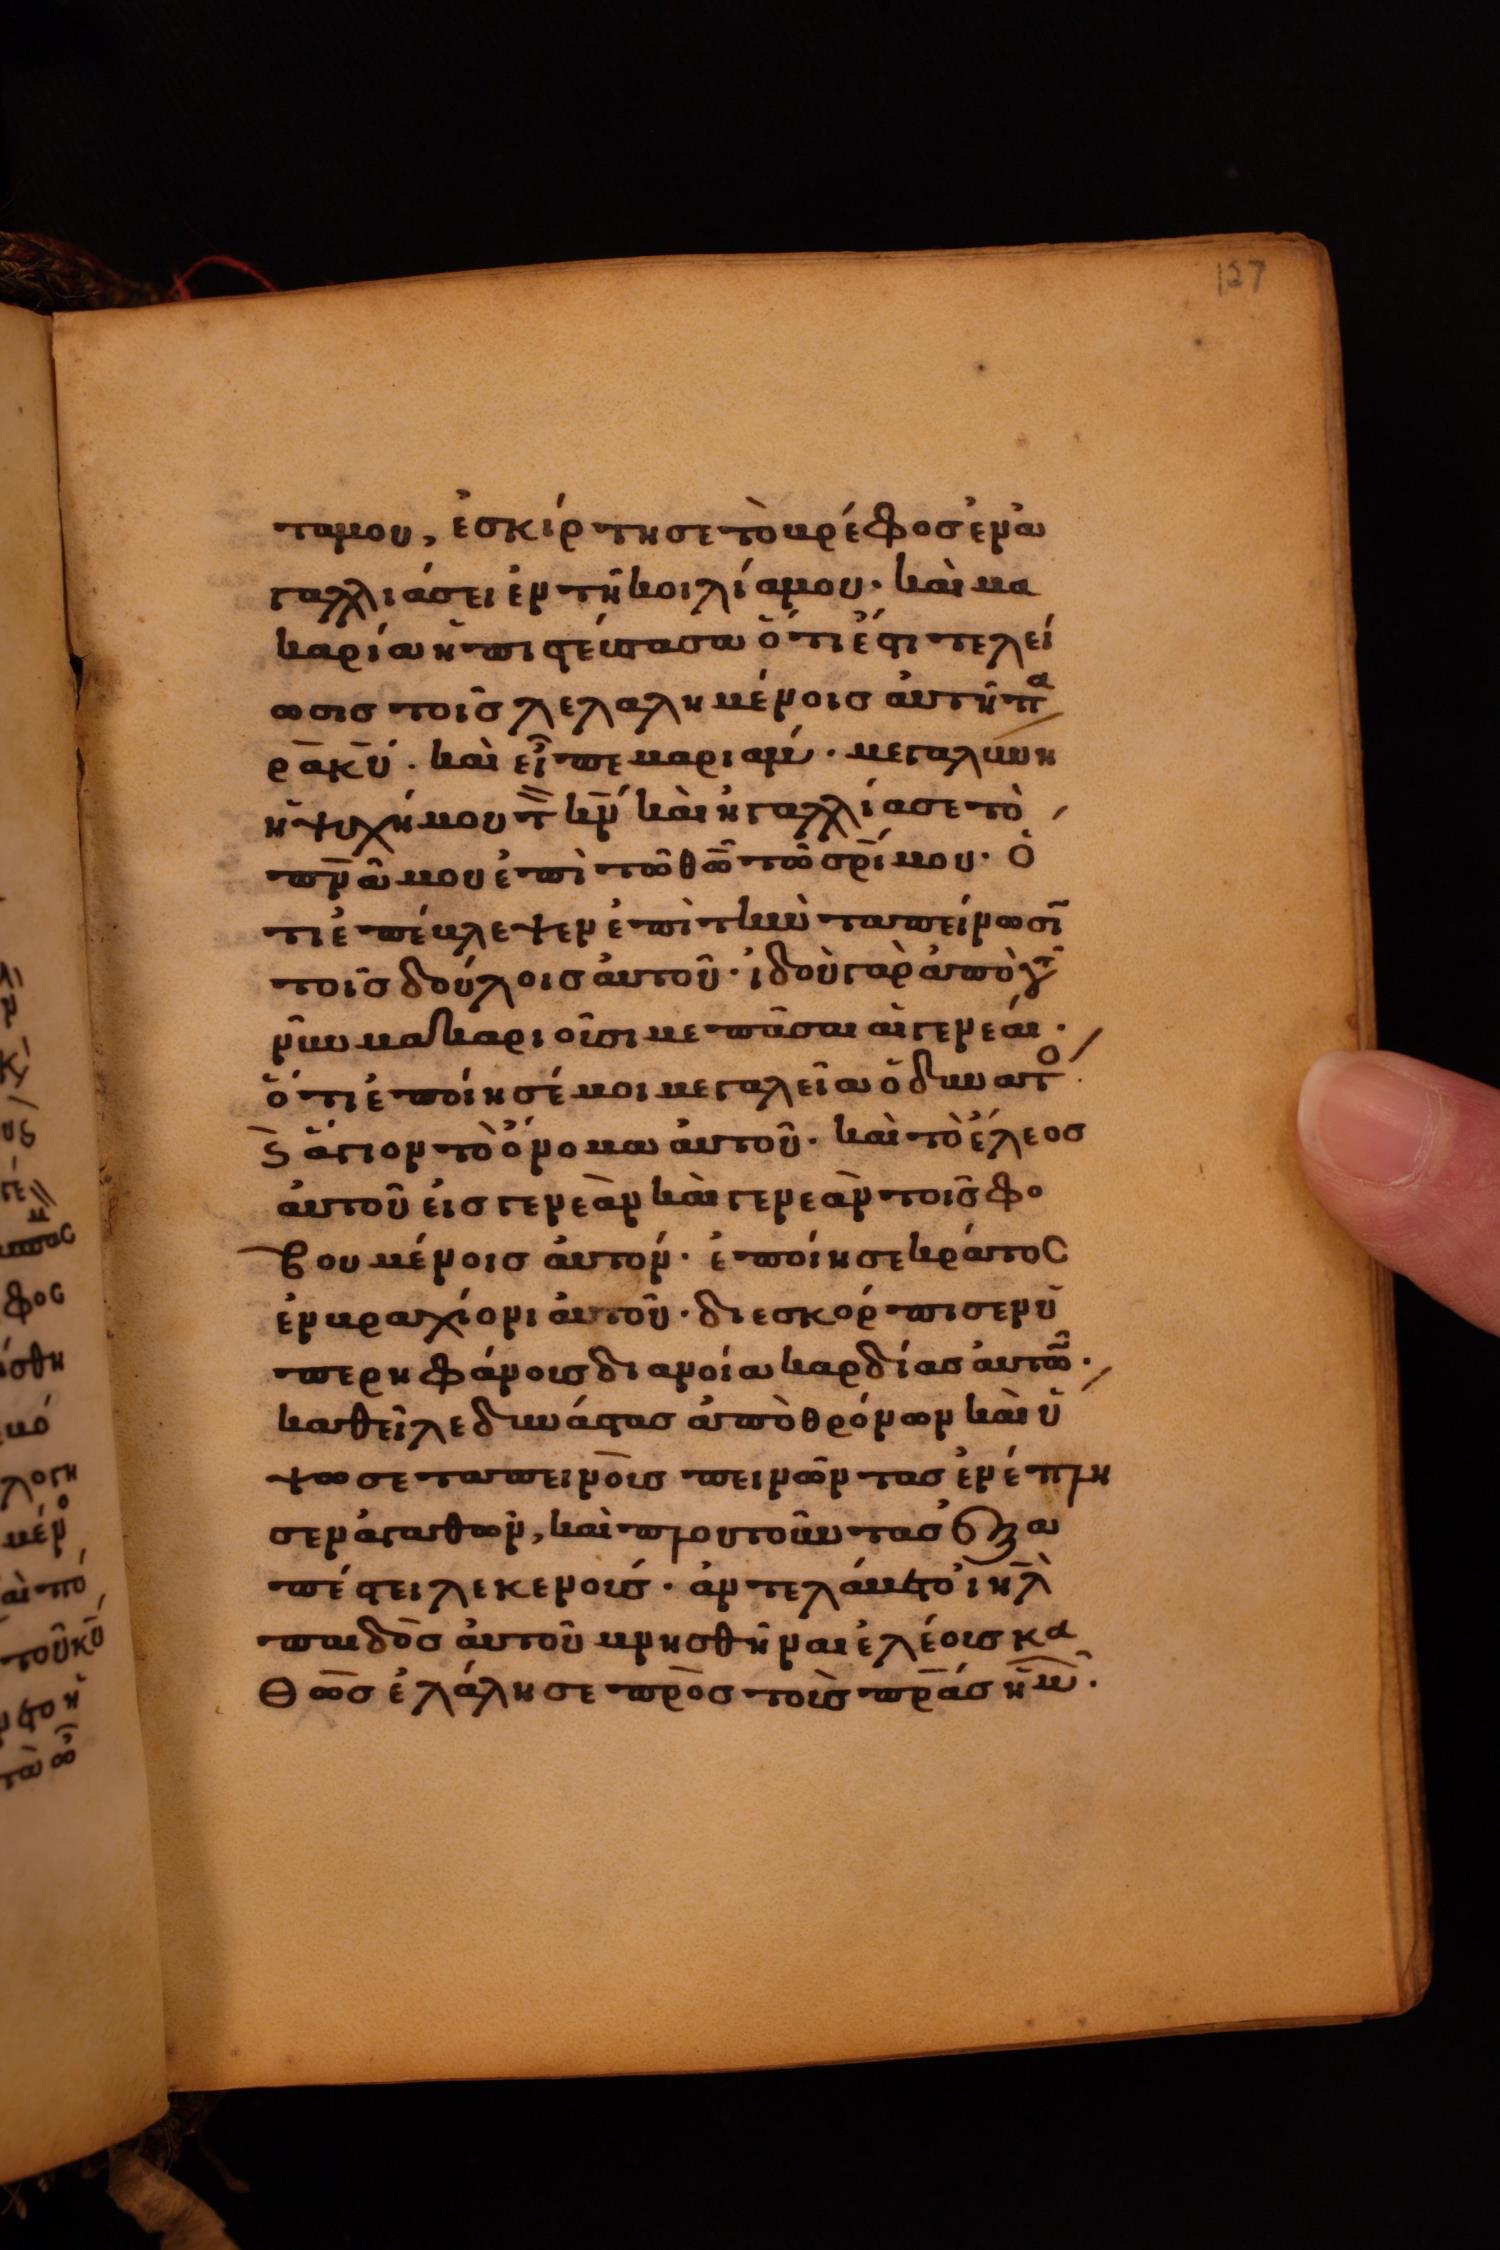 127
τα μου, ἐσκίρτησε τὸ βρέφος ἐν ἀ
γαλλιάσει ἐν τῆ κοιλία μου· καὶ μα
καρία ἡ πιστεύσασα ὅτι ἔσται τελεί
ωσις τοῖς λελαλημένοις αὐτῆ πα
ρὰ κ̅υ̅· καὶ εἶπε μαριάμ· μεγαλύνει
ἡ ψυχή μου τὸν κ̅ν̅ καὶ ἠγαλλίασε τὸ
π̅ν̅α̅ μου ἐπὶ τῶ θ̅ω̅ τῶ σ̅ρ̅ί μου· ὅ
τι ἐπέβλεψεν ἐπὶ τὴν ταπείνωσιν
τοῖς δούλοις αὐτοῦ· ἰδοὺ γὰρ ἀπὸ τοῦ
νῦν μακαριοῦσι με πᾶσαι αἱ γενεαί·
ὅτι ἐποίησέ μοι μεγαλεῖα ὁ δυνατὸ
ς ἅγιον τὸ ὄνομα αὐτοῦ· καὶ τὸ ἔλεος
αὐτοῦ εἰς γενεὰν καὶ γενεὰν τοῖς φο
βουμένοις αὐτόν· ἐποίησε κράτος
ἐν βραχίονι αὐτοῦ· διεσκόρπισεν ὑ
περηφάνοις διανοία καρδίας αὐτῶν·
καθεῖλε δυνάστας ἀπὸ θρόνων καὶ ὕ
ψωσε ταπεινοὺς πεινῶντας ἐνέπλη
σεν ἀγαθῶν, καὶ πλουτοῦντας ἐξα
πέστειλε κενούς· ἀντελάβετο ἰ̅η̅λ̅
παιδὸς αὐτοῦ μνησθῆναι ἐλέοις κα
θὼς ἐλάλησε πρὸς τοὺς π̅ρ̅ά̅ς ἡμῶν·